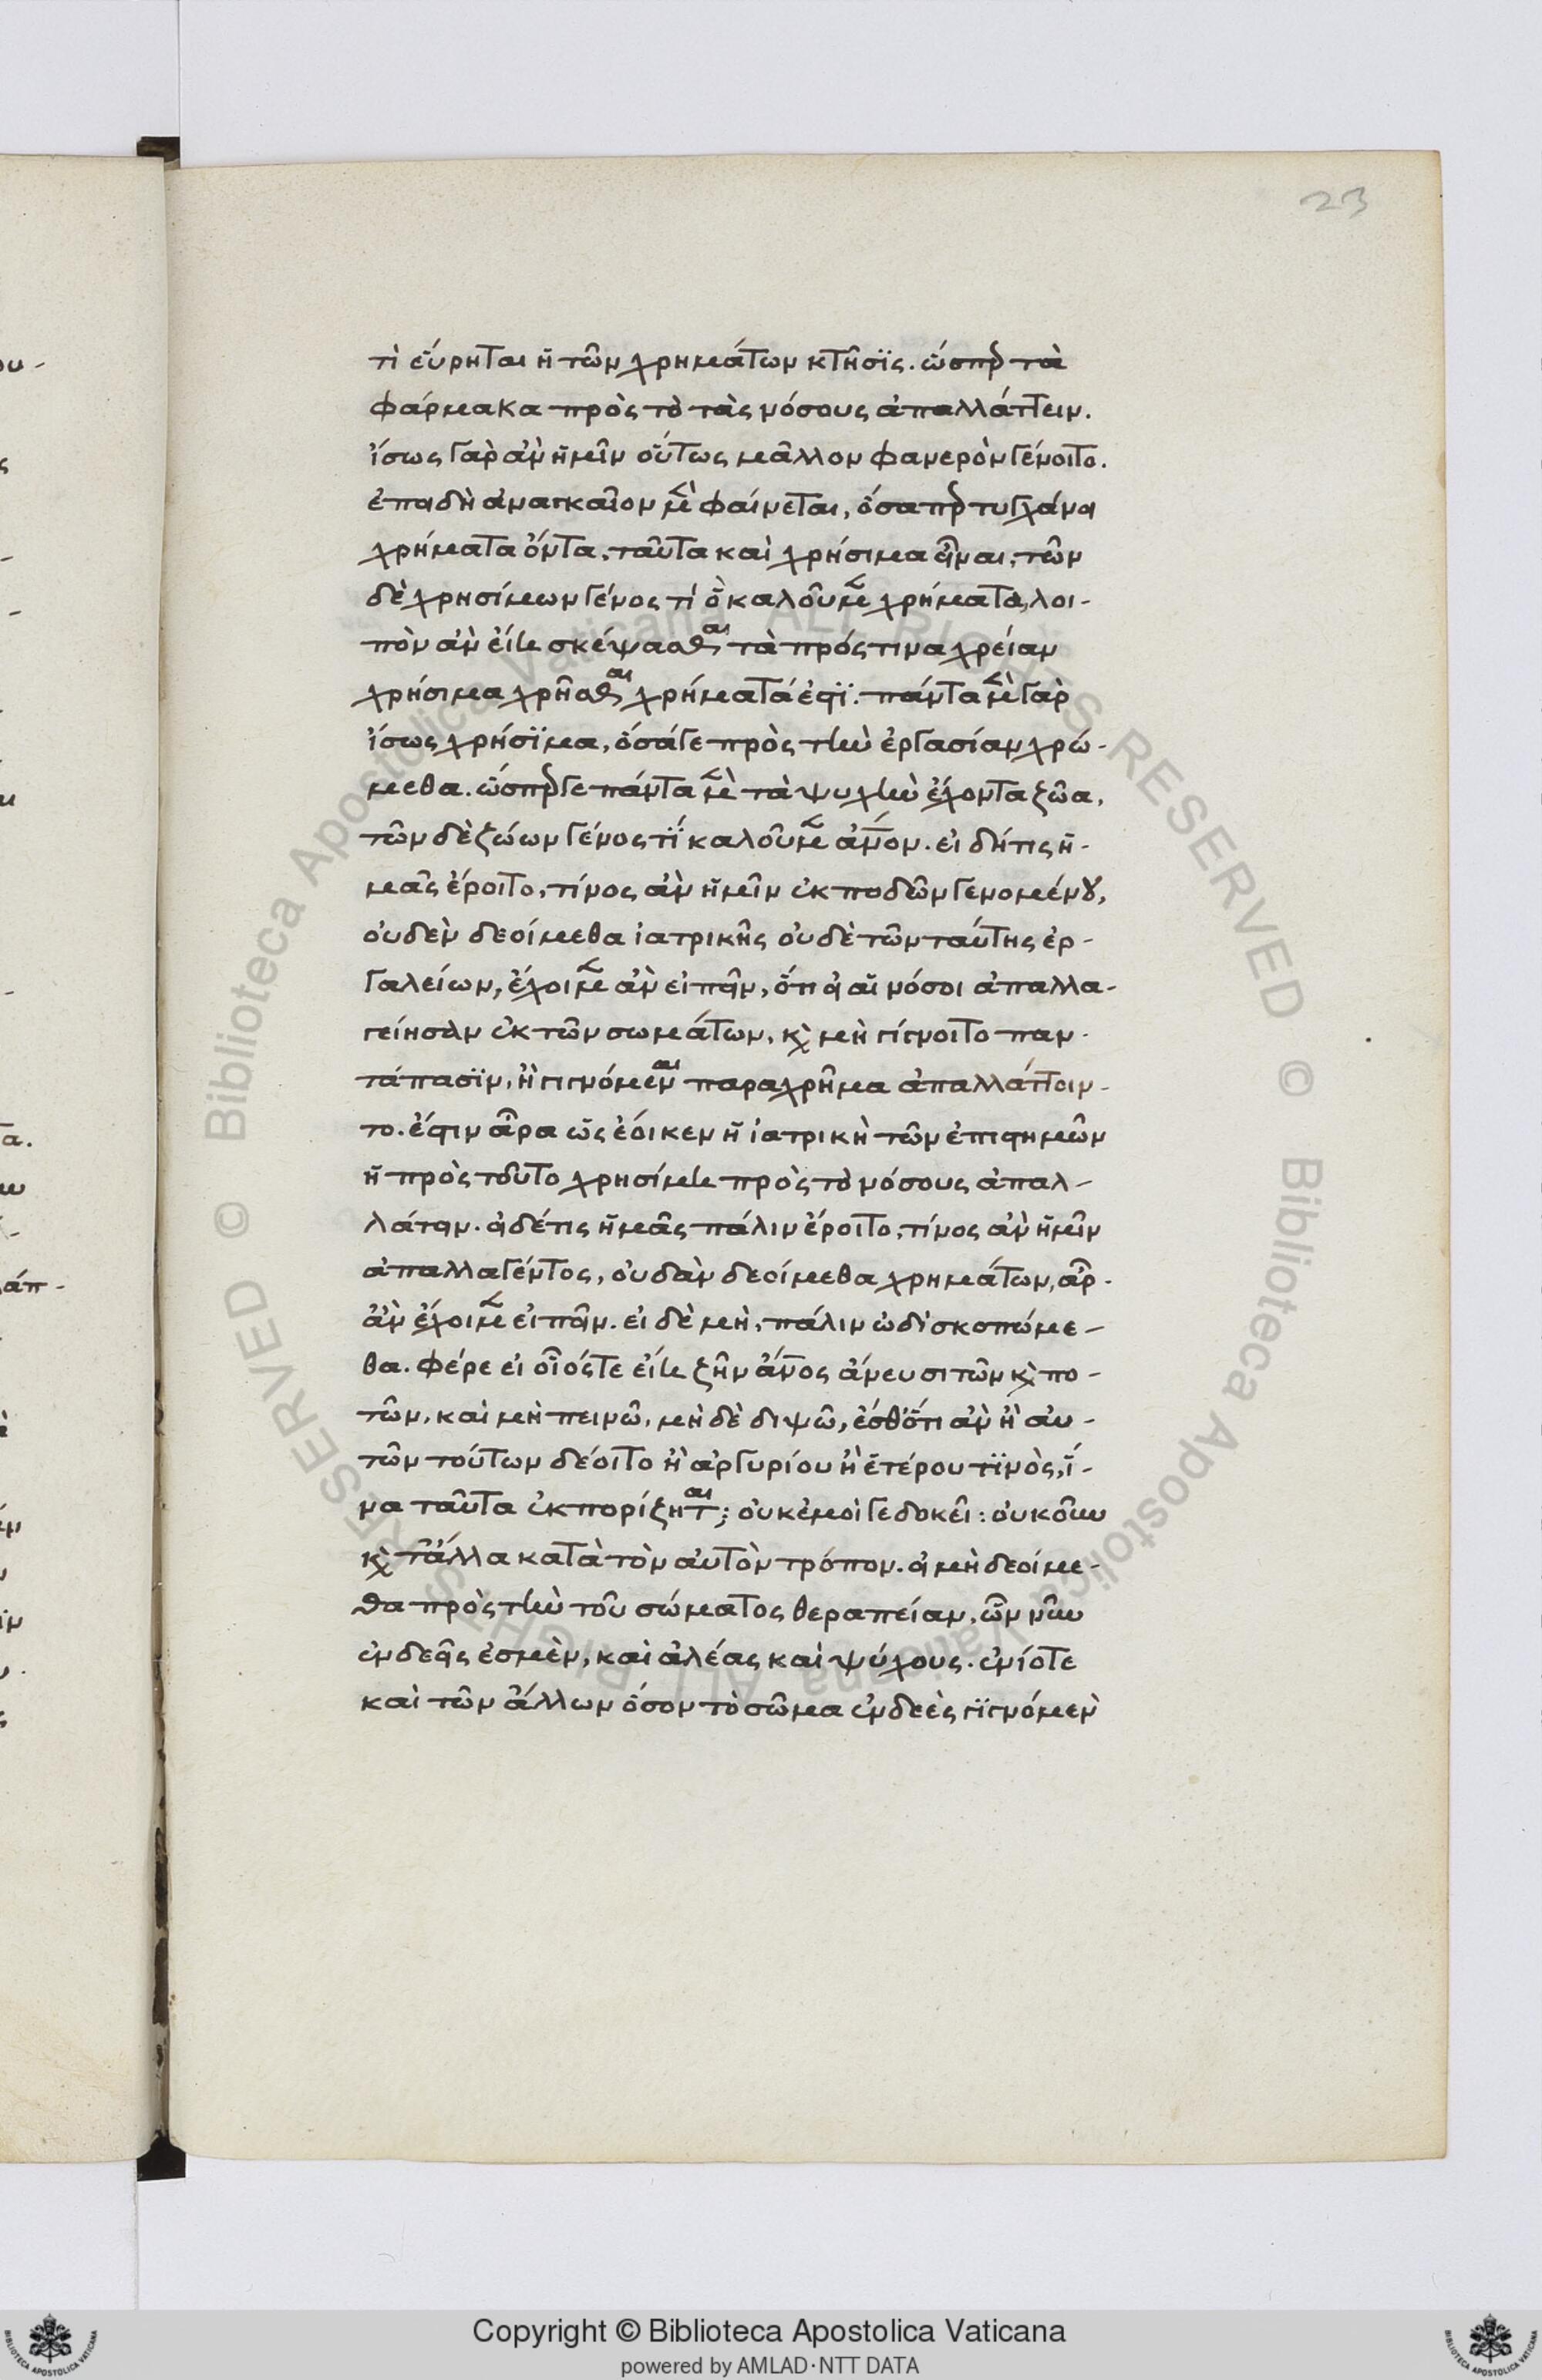 23
τὶ εὕρηται ἡ τῶν χρημάτων κτῆσϊς. ὥσπερ τὰ
φάρμακα πρὸς τὸ τὰς νόσους ἀπαλλάττειν.
ἴσως γὰρ ἂν ἡμῖν οὕτως μᾶλλον φανερὸν γένοιτο.
ἐπειδὴ ἀναγκαῖον μὲν φαίνεται, ὅσαπερ τυγχάνει
χρήματα ὄντα, ταῦτα καὶ χρήσιμα εἶναι, τῶν
δὲ χρησίμων γένος τί ὃ καλοῦμεν χρήματα, λοι-
πὸν ἂν εἴη σκέψασθαι τὰ πρός τινα χρείαν
χρήσιμα χρῆσθαι χρήματά ἐστϊ. πάντα μὲν γὰρ
ἴσως χρήσϊμα, ὅσάγε πρὸς τὴν ἐργασίαν χρώ-
μεθα. ὥσπερ γε πάντα μὲν τὰ ψυχὴν ἔχοντα ζῶα,
τῶν δὲ ζώων γένος τΐ καλοῦμεν ἄνον. εἰ δήτις ἡ-
μᾶς ἔροιτο, τίνος ἂν ἡμῖν ἐκποδὼν γενομένου,
οὐδὲν δεοίμεθα ἰατρικῆς οὐδὲ τῶν ταύτης ἐρ-
γαλείων, ἔχοιμεν ἂν εἰπεῖν, ὅτι εἰ αἱ νόσοι ἀπαλλα-
γείησαν ἐκ τῶν σωμάτων, καὶ μὴ γίγνοιτο παν-
τάπασϊν, ἢ γιγνόμεναι παραχρῆμα ἀπαλλάττοιν-
το. ἔστιν ἆρα ὡς ἔοικεν ἡ ἰατρικὴ τῶν ἐπιστημῶν
ἡ πρὸς τοῦτο χρησίμη πρὸς τὸ νόσους ἀπαλ-
λάτειν. εἰ δέτις ἡμᾶς πάλιν ἔροιτο, τίνος ἂν ἡμῖν
ἀπαλλαγέντος, οὐδὰν δεοίμεθα χρημάτων, ἆρ-
ἂν ἔχοιμεν εἰπεῖν. εἰ δὲ μὴ, πάλιν ὡδὶ σκοπώμε-
θα. φέρε εἰ οἷόςτε εἴη ζῆν ἄνος ἄνευ σιτῶν καὶ πο-
τῶν, καὶ μὴ πεινῶ, μὴ δὲ διψῶ, ἔσθ' ὅτι ἂν ἢ αὐ-
τῶν τούτων δέοιτο ἢ ἀργυρίου ἢ ἑτέρου τϊνὸς, ἵ-
να ταῦτα ἐκπορίζηται; οὐκ ἐμοὶ γε δοκεῖ: οὐκοῦν
καὶ τἆλλα κατὰ τὸν αὐτὸν τρόπον. εἰ μὴ δεοίμε-
θα πρὸς τὴν τοῦ σώματος θεραπείαν, ὧν νῦν
ἐνδεεῖς ἐσμὲν, καὶ ἀλέας καὶ ψύχους. ἐνίοτε
καὶ τῶν ἄλλων ὅσον τὸ σῶμα ἐνδεὲς γϊγνόμεν
Copyright © Biblioteca Apostolica Vaticana
powered by AMLAD·NTT DATA